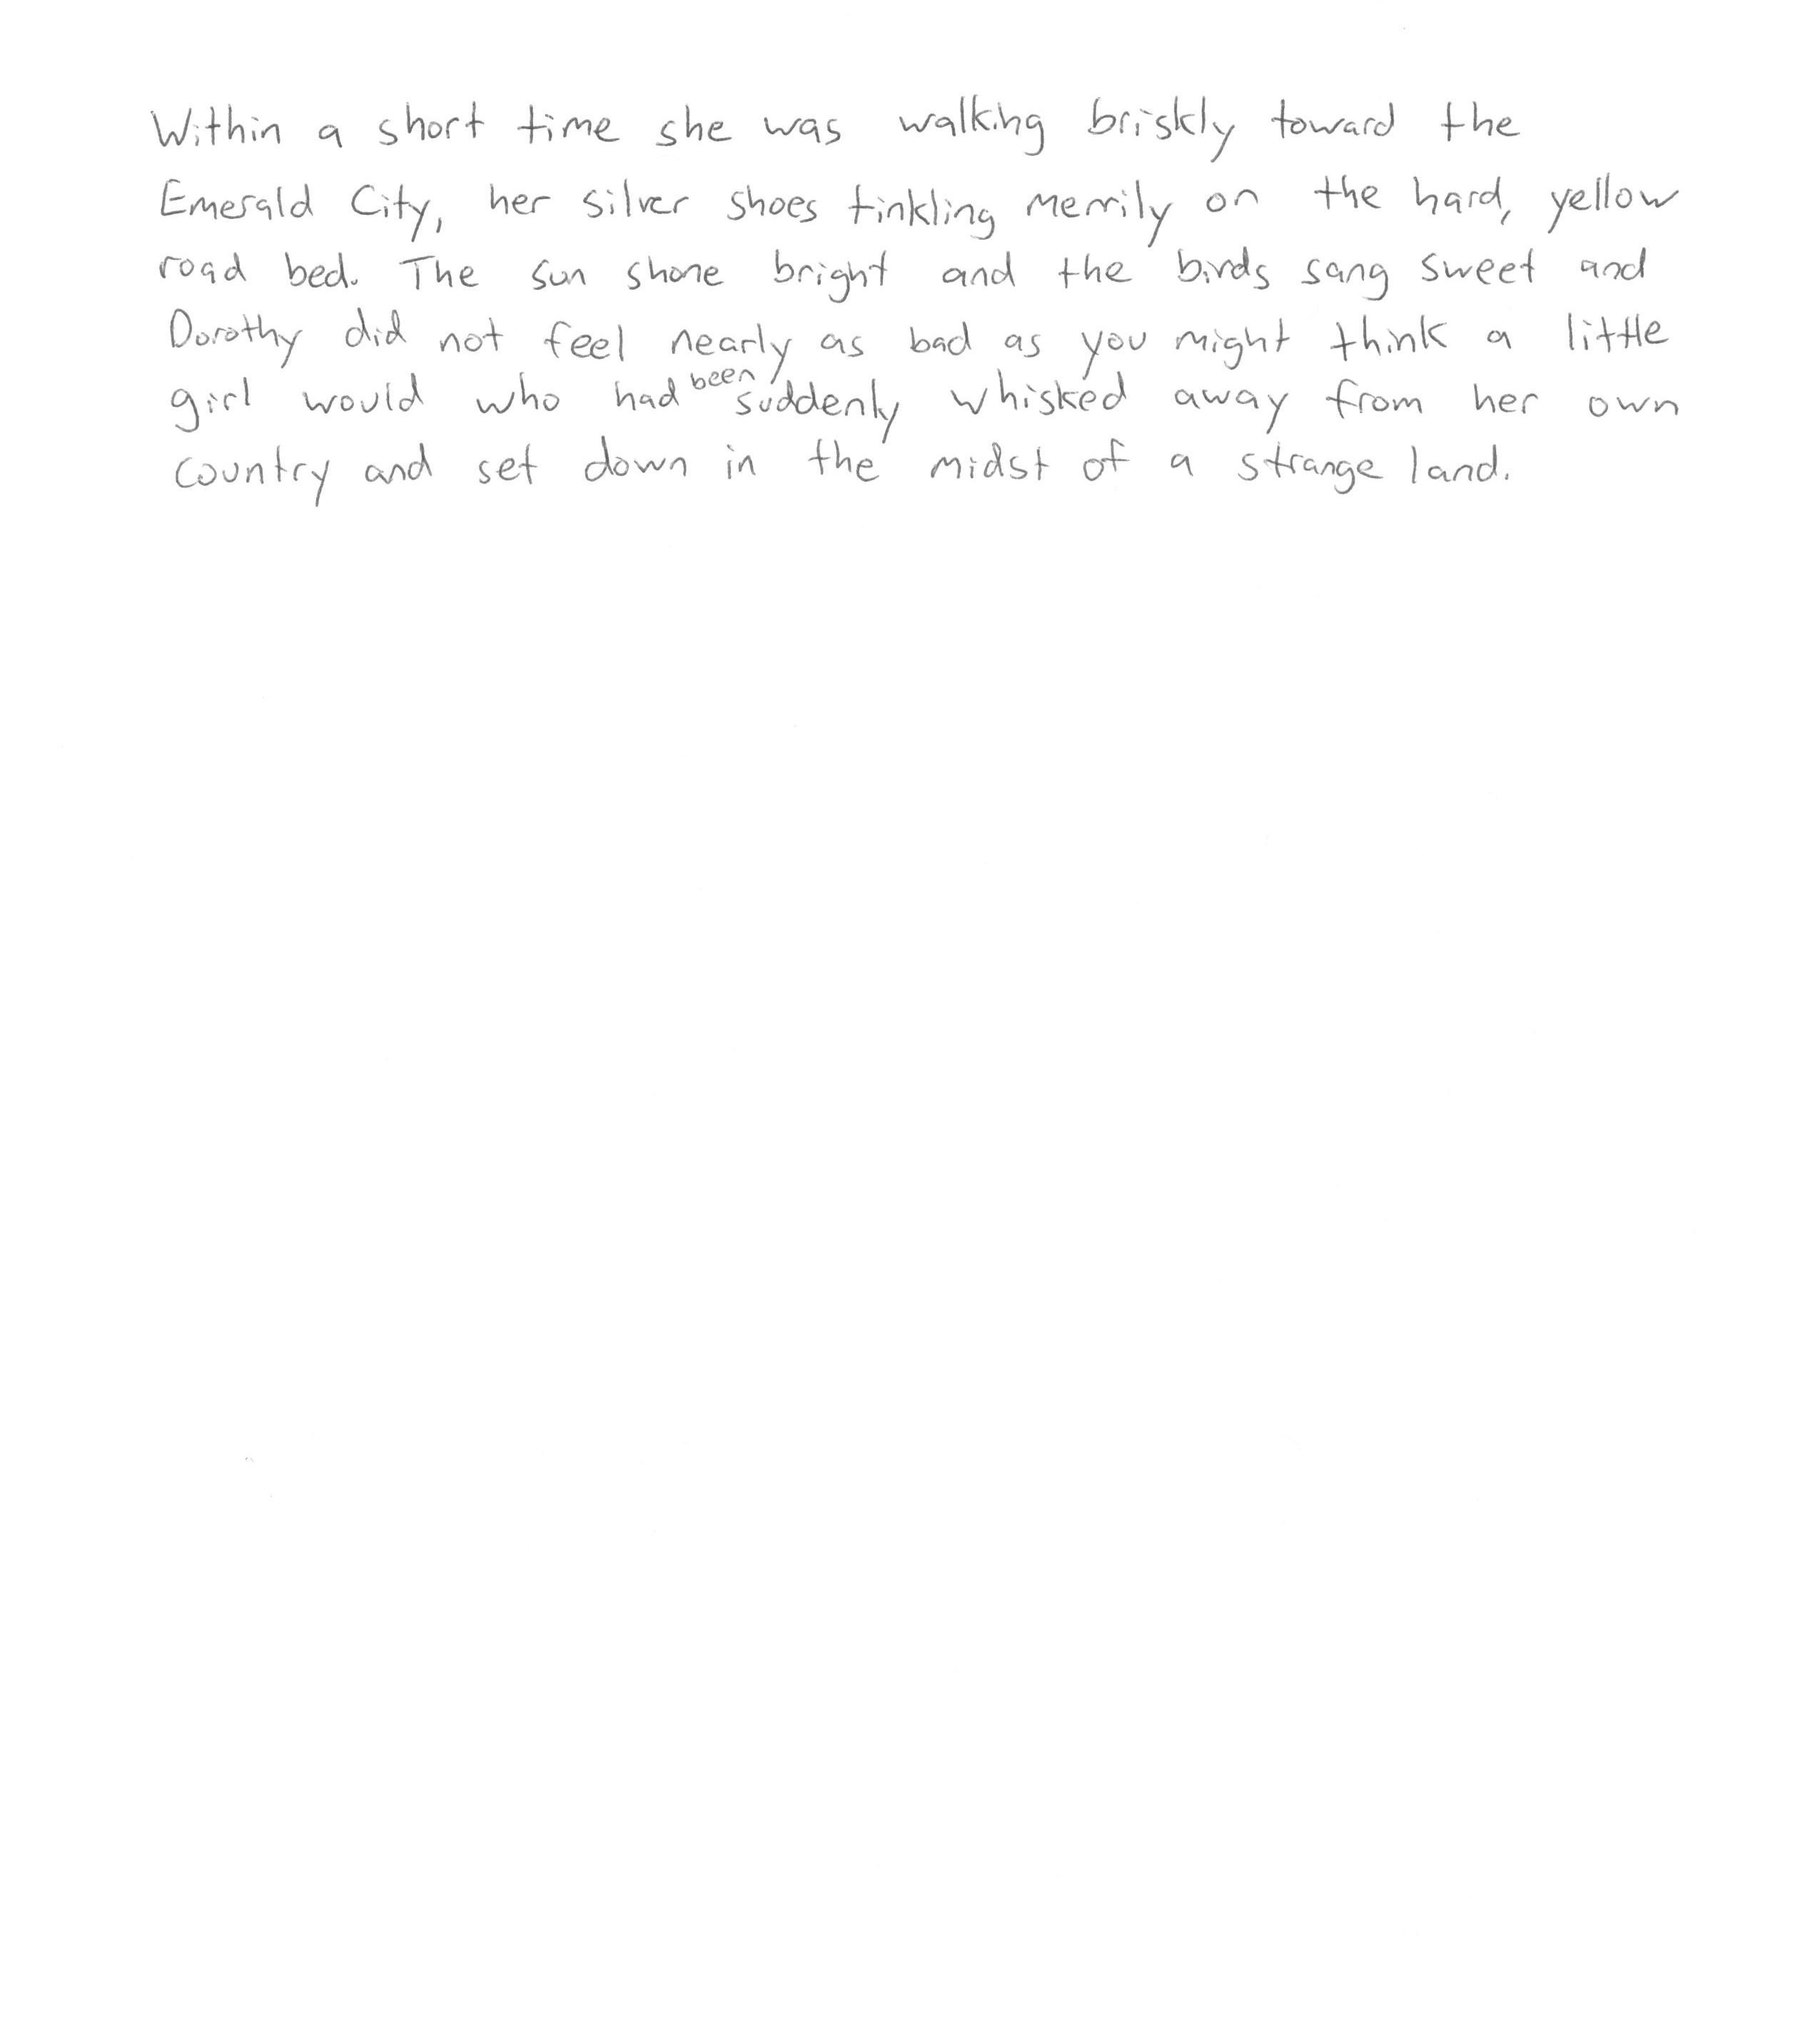 Within a short time she was walking briskly toward the
Emerald City, her silver shoes tinkling merrily on the hard, yellow
road bed. The sun shone bright and the birds sang sweet and
Dorothy did not feel nearly as bad as you might think a little
girl would who had been suddenly whisked away from her own
country and set down in the midst of a strange land.